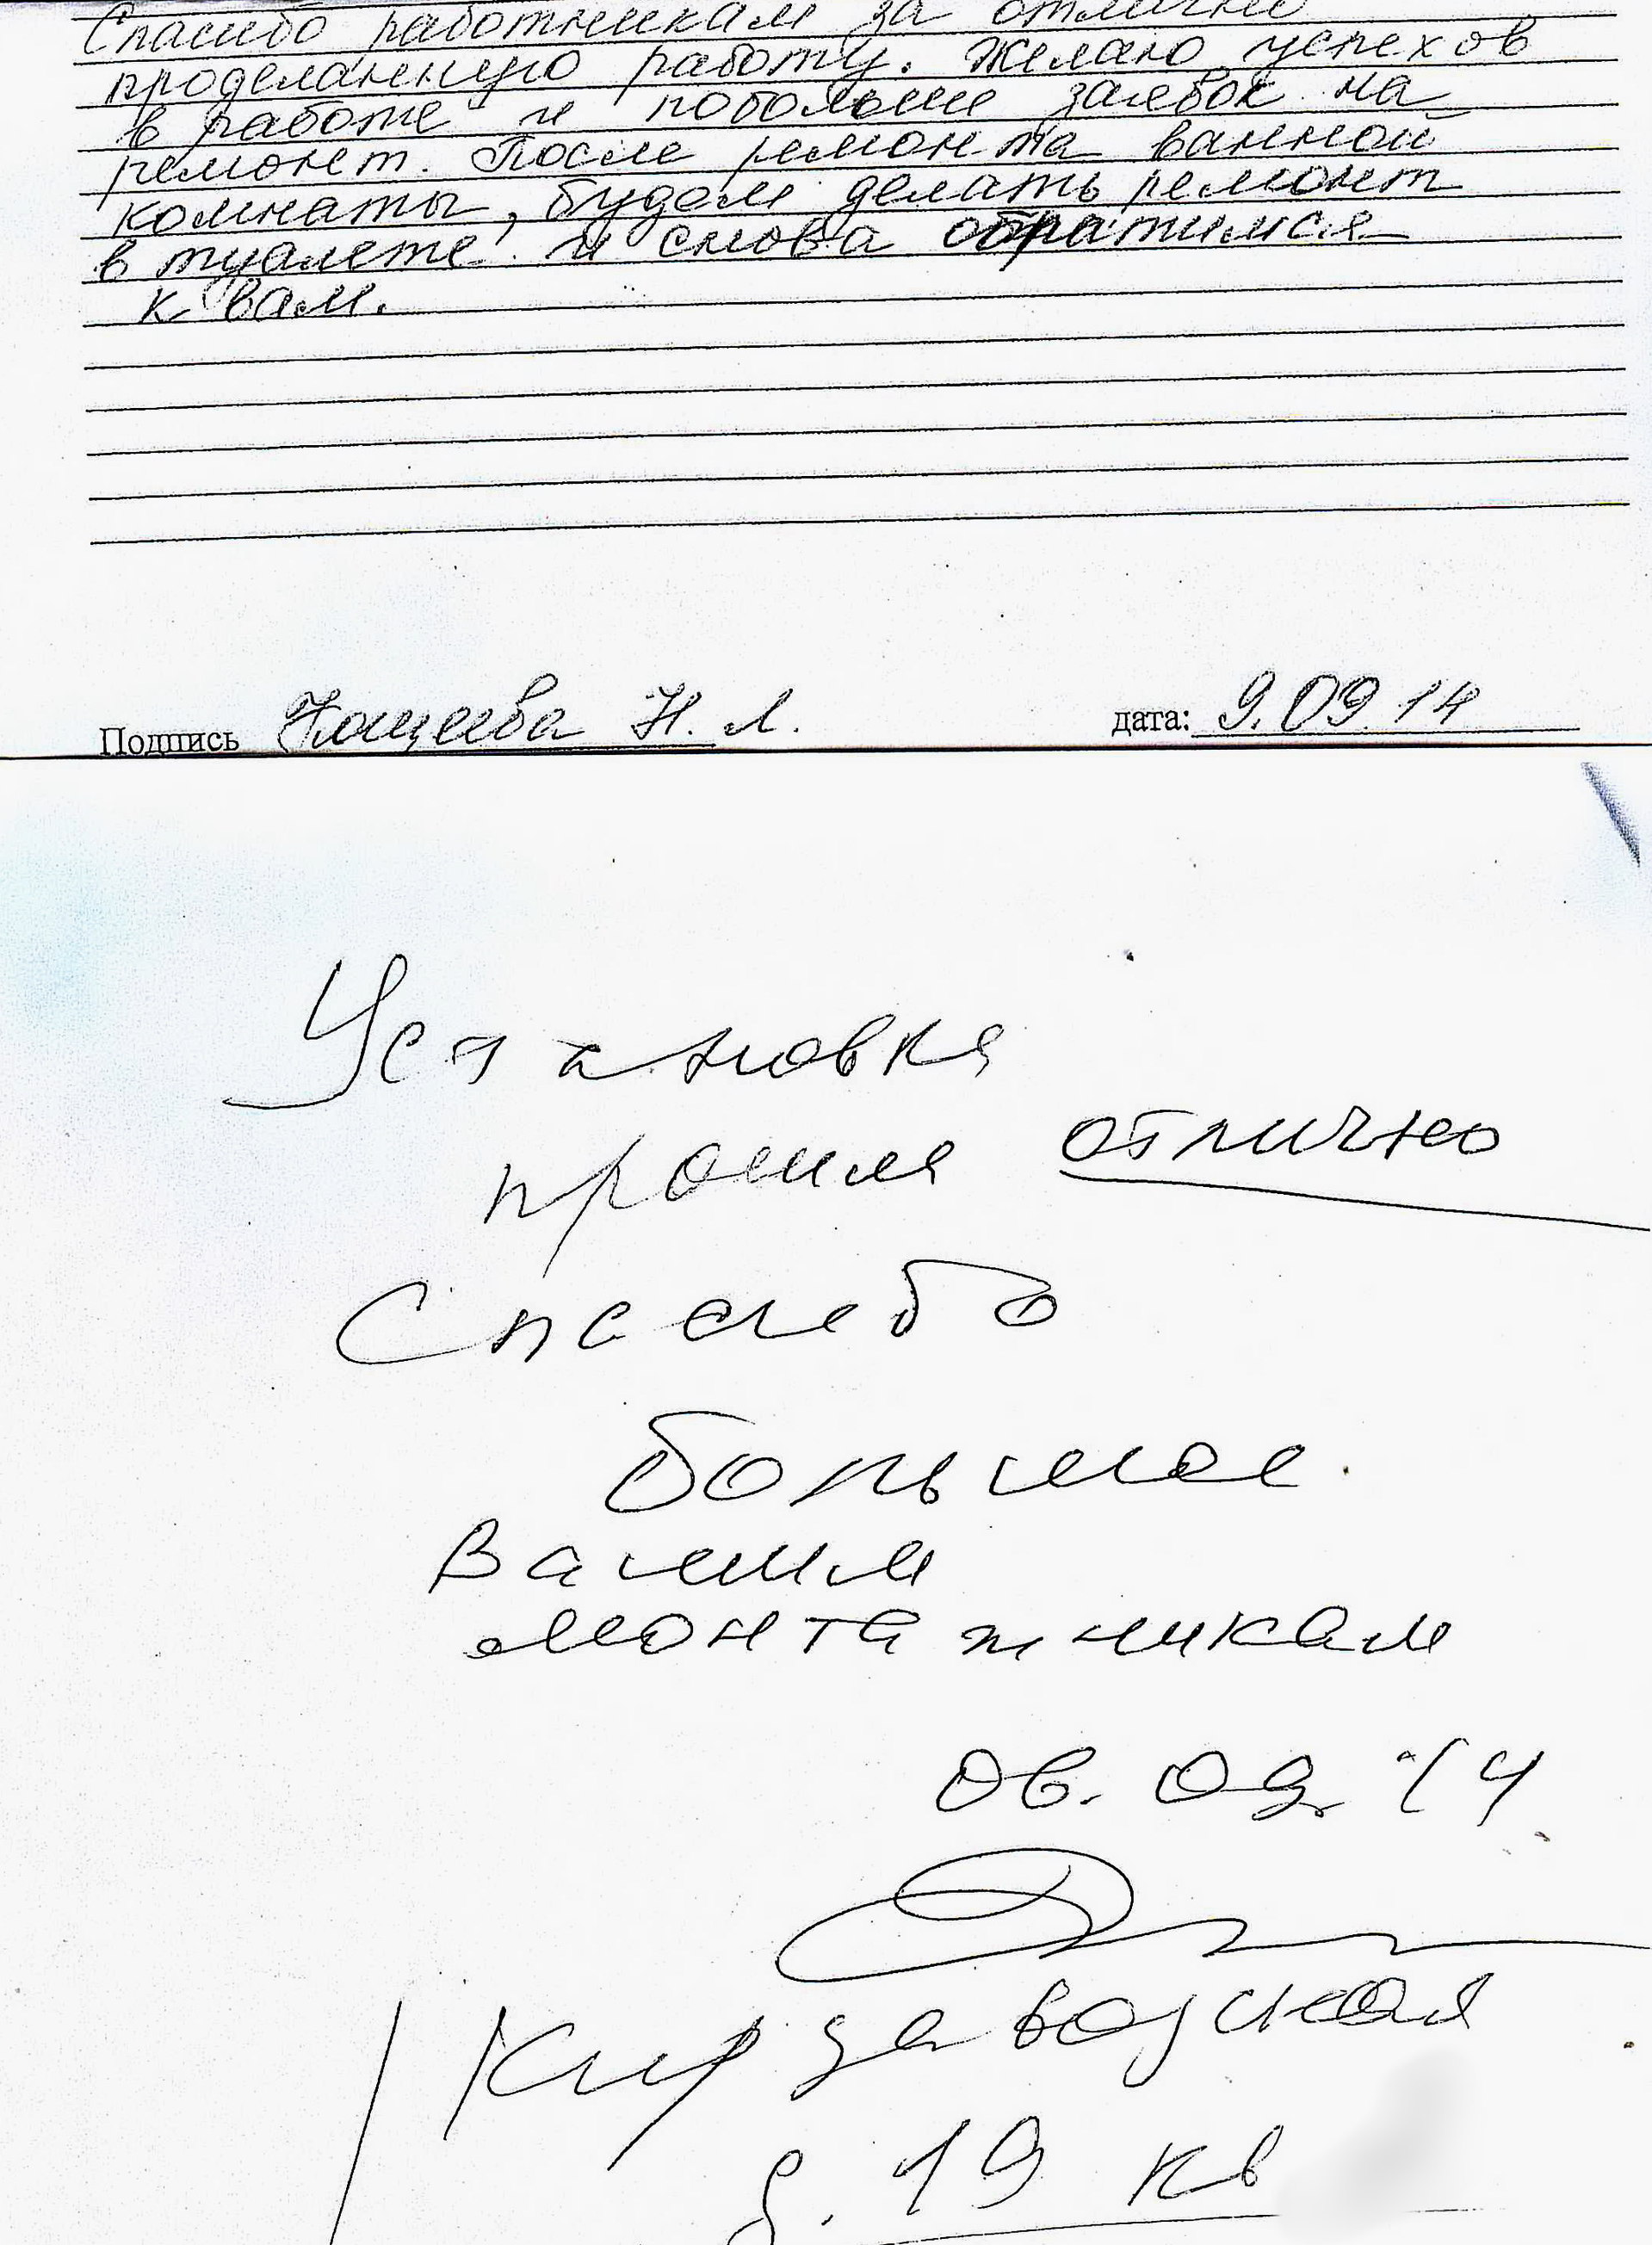 Спасибо работникам за отлично
проделанную работу. Желаю успехов
в работе и побольше заявок на
ремонт. После ремонта ванной
комнаты, будем делать ремонт
в туалете и снова обратимся
к вам.
Подпись Н. Л. дата: 9.09.14
Установка
прошла отлично
Спасибо
большое
Вашим
монтажникам
08.09.14
Кирзаводская
д. 19 кв